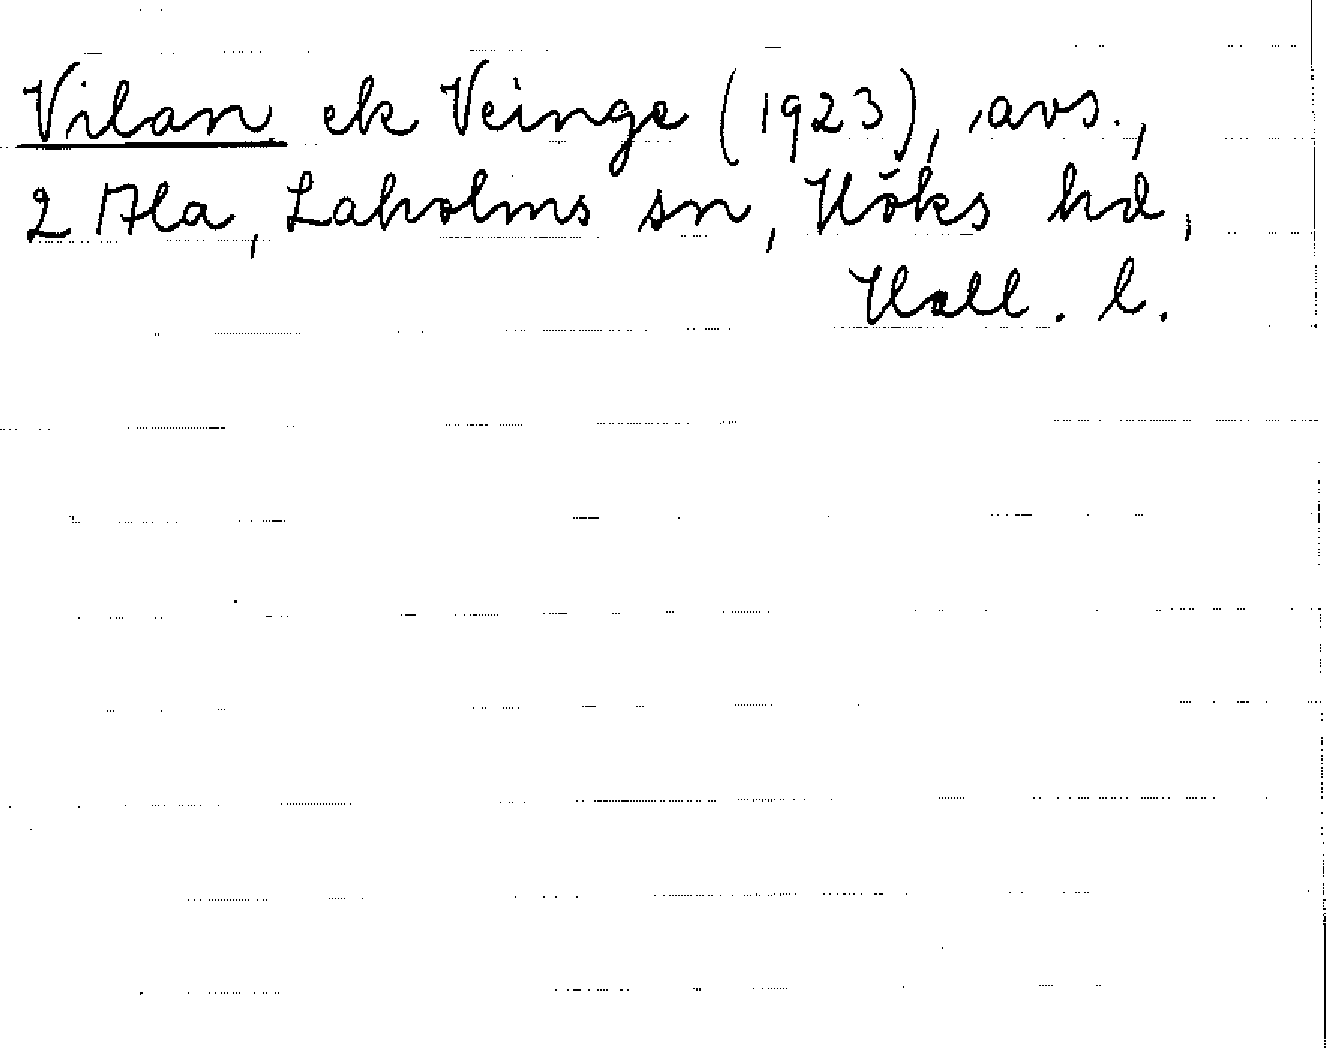 Vilan ek Veinge (1923), avs.,
2 Ala, Laholms sn, Höks hd,
Hall. l.